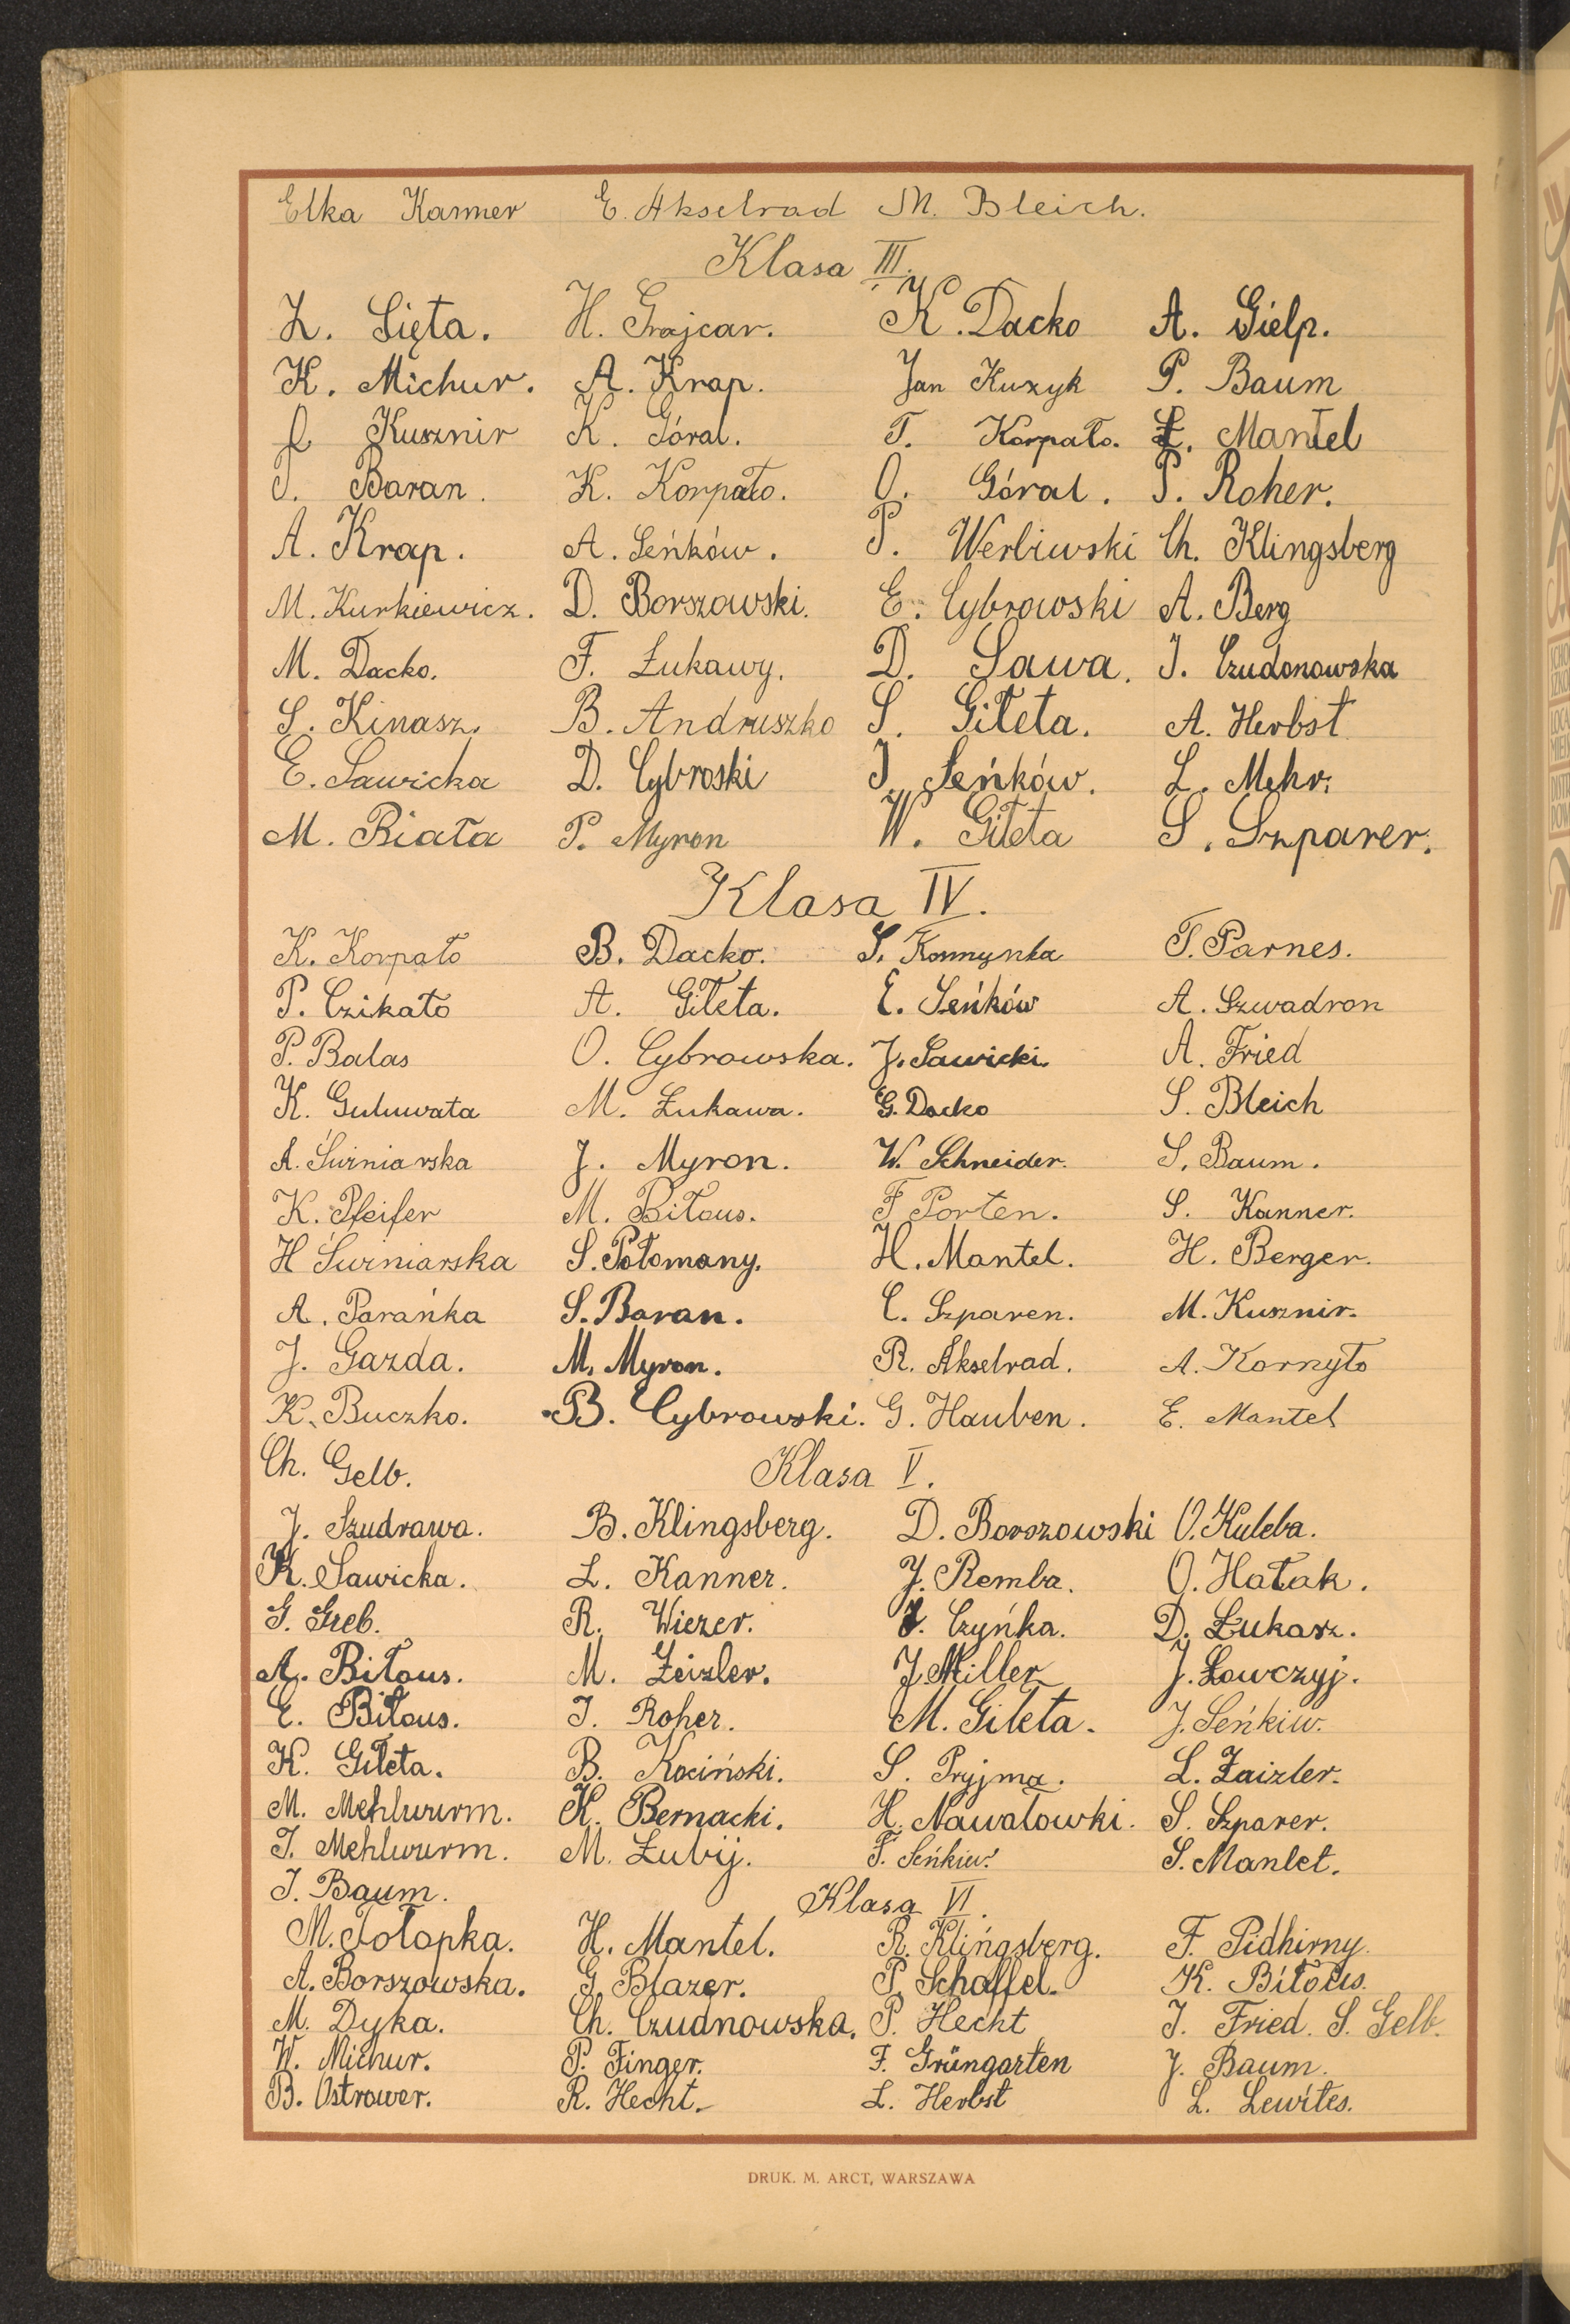 Elka Kanner E. Akselrad M. Bleich.
Klasa III.
Z. Sięta. H. Grajcar. K. Dacko A. Gielp.
K. Michur. A. Krap. Jan Kuzyk P. Baum
J. Kusznir K. Góral. T. Korpało. Ł. Mantel
J. Baran. K. Korpało. O. Góral. P. Roher.
A. Krap. A. Seńków. P. Werbiwski Ch. Klingsberg
M. Kurkiewicz. D. Borszowski. E. Cybrowski A. Berg
M. Dacko. F. Łukawy. D. Sawa. J. Czudonowska
S. Kinasz. B. Andruszko S. Giłeta. A. Herbst
E. Sawicka D. Cybroski J. Seńków. L. Mehr.
M. Biała P. Myron W. Giłeta S. Szparer.
Klasa IV.
K. Korpało B. Dacko. S. Kornynka T. Parnes.
P. Czikało A. Giłeta. E. Seńków A. Szwadron
P. Balas O. Cybrowska. J. Sawicki. A. Fried
K. Guluwata M. Łukawa. G. Dacko S. Bleich
A. Świniarska J. Myron. W. Schneider. S. Baum.
K. Pfeifer M. Biłous. F Porten. S. Kanner.
H Świniarska S. Połomany. H. Mantel. H. Berger.
A. Parańka S. Baran. C. Szparen. M. Kusznir.
J. Gazda. M. Myron. R. Akselrad. A. Kornyło
K. Buczko. B. Cybrowski. G. Hauben. E. Mantel
Ch. Gelb. Klasa V.
J. Szudrawa. B. Klingsberg. D. Borszowski O. Kuleba.
K. Sawicka. L. Kanner. J. Remba. O. Hałak.
G. Greb. R. Wiezer. J. Czyńka. D. Łukasz.
A. Biłous. M. Zeizler. J Miller J. Łowczyj.
E. Biłous. J. Roher. M. Gileta. J. Seńkiw.
K. Giłeta. B. Kociński. S. Pryjma. L. Zaizler.
M. Mehlwurm. K. Bernacki. H. Nawałowki. S. Szparer.
J. Mehlwurm. M. Łubij. F. Seńkiw. S. Manlet.
J. Baum. Klasa VI.
M. Tołopka. H. Mantel. R. Klińgsberg. F. Pidhirny.
A. Borszowska. G. Blazer. P. Schaffel. K. Biłous.
M. Dyka. Ch. Czudnowska. P. Hecht J. Fried. S. Gelb.
W. Michur. P. Finger. F. Grüngarten J. Baum.
B. Ostrower. R. Hecht. L. Herbst L. Lewites.
DRUK. M. ARCT, WARSZAWA